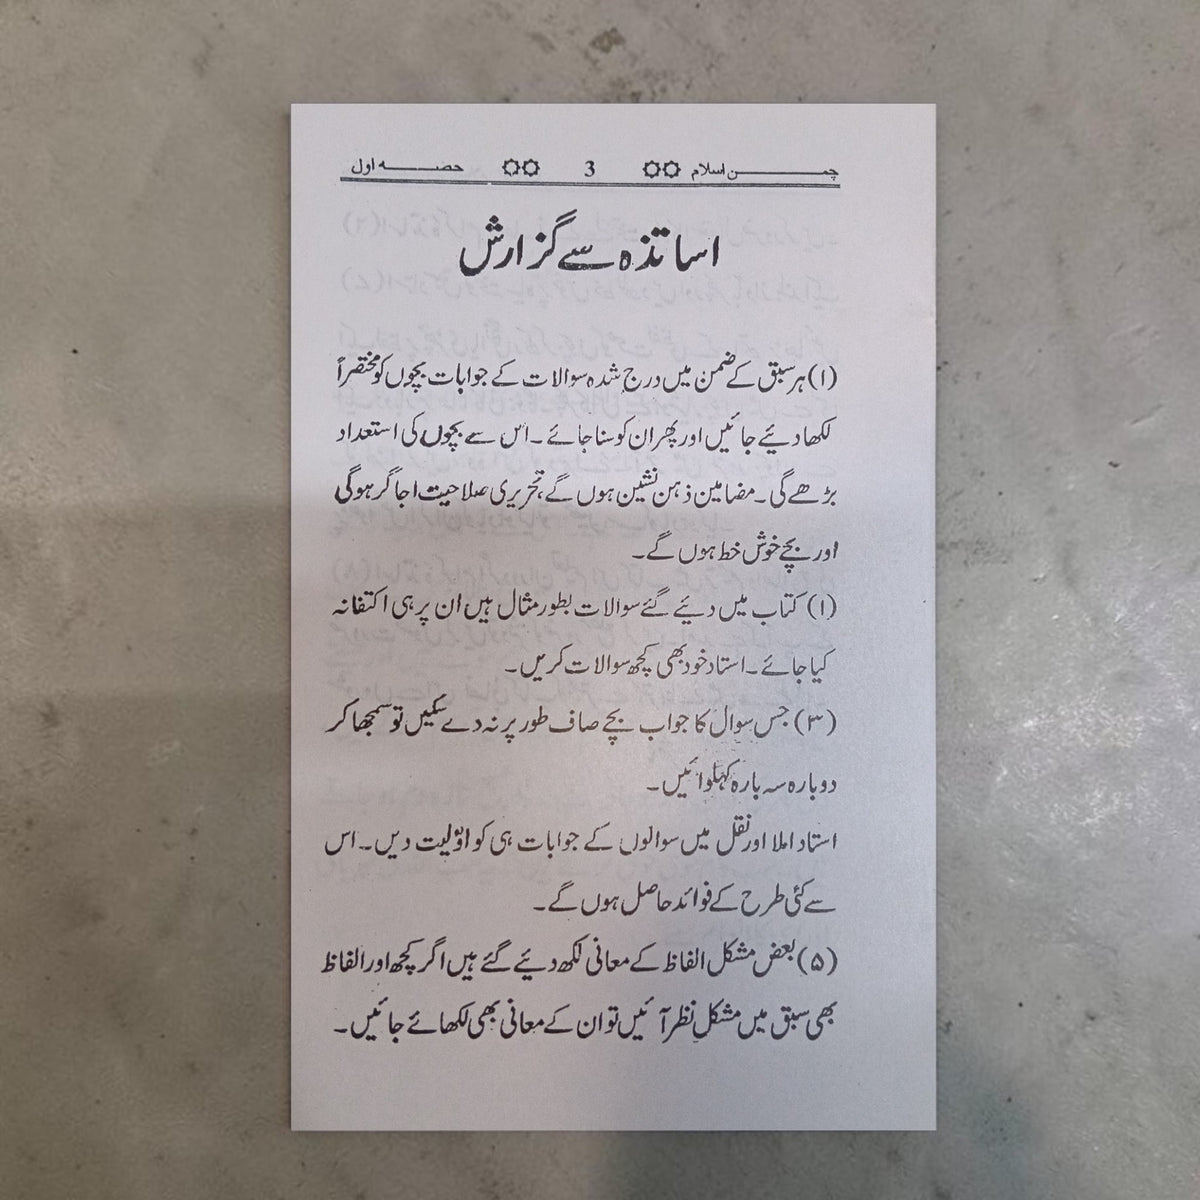 چمن اسلام 3 حصہ اول
اساتذہ سے گزارش
(۱) ہر سبق کے ضمن میں درج شدہ سوالات کے جوابات بچوں کو مختصراً
لکھا دیئے جائیں اور پھر ان کو سنا جائے۔ اس سے بچوں کی استعداد
بڑھے گی۔ مضامین ذہن نشین ہوں گے، تحریری صلاحیت اجاگر ہوگی
اور بچے خوش خط ہوں گے۔
(۱) کتاب میں دیئے گئے سوالات بطور مثال ہیں ان پر ہی اکتفا نہ
کیا جائے۔ استاد خود بھی کچھ سوالات کریں۔
(۳) جس سوال کا جواب بچے صاف طور پر نہ دے سکیں تو سمجھا کر
دوبارہ سہ بارہ کہلوائیں۔
استاد املا اور نقل میں سوالوں کے جوابات ہی کو اوّلیت دیں۔ اس
سے کئی طرح کے فوائد حاصل ہوں گے۔
(۵) بعض مشکل الفاظ کے معانی لکھ دیئے گئے ہیں اگر کچھ اور الفاظ
بھی سبق میں مشکل نظر آئیں تو ان کے معانی بھی لکھائے جائیں۔